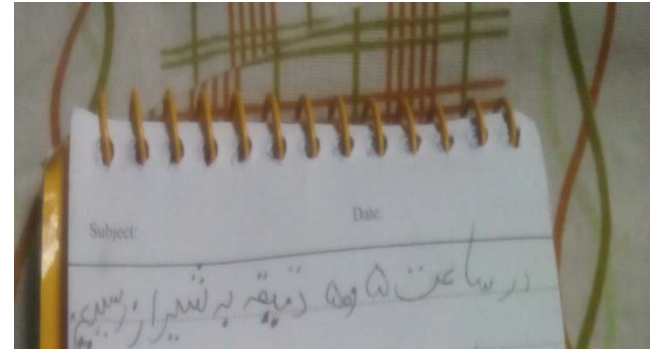 Subject: Date:
در ساعت ۵ و ۵ دقیقه به شیراز رسید